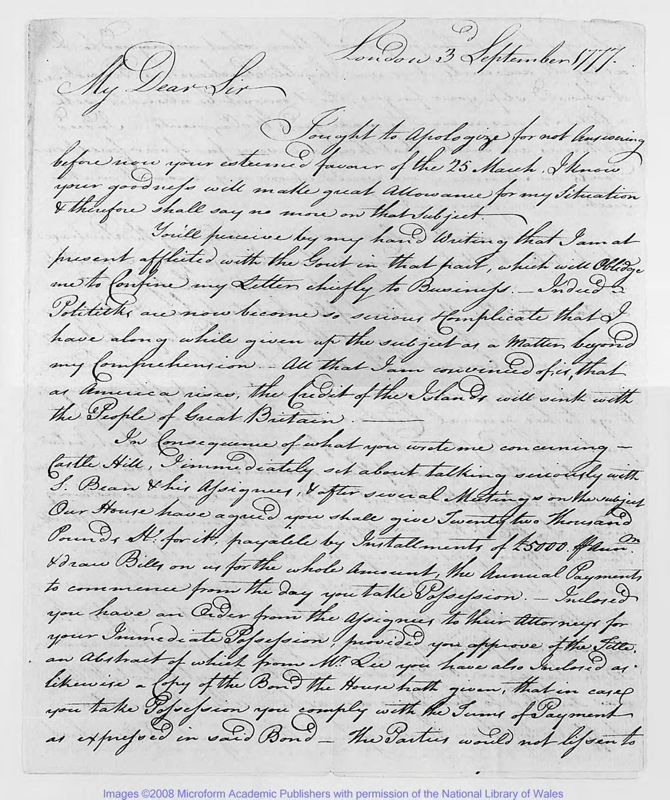 London 3d September 1777.
My Dear Sir
I ought to Apologize for not Answering
before now your esteemed favour of the 25 March, I know
your goodness will make great Allowance for my Situation
& therefore shall say no more on that Subject.
Youll perceive by my hand Writing that I am at
present afflicted with the Gout in that part, which will Oblidge
me to Confine my Letter chiefly to Bussiness. - Indeed
Polititks are now become so serious & Complicate that I
have along while given up the subject as a Matter beyond
my Comprehension - All that I am convinced of, is, that
as America rises, the Credit of the Islands will sink with
the People of Great Britain.
In Consequence of what you wrote me concerning -
Castle Hill, I immediately set about talking seriously with
S. Bean & his Assignees, & after several Meetings on the subject
Our House have agreed you shall give Twenty two thousand
Pounds St. for it, payable by Installments of £5000 Ann.
& draw Bills on us for the whole Amount, the Annual Payments
to commence from the day you take Possession. - Inclosed
you have an Order from the Assignees to their Attorneys for
your Immediate Possession provided you approve of the Title,
an Abstract of which from Mr. Lee you have also Inclosed as
likewise a Copy of the Bond the House hath given, that in case
you take Possession you comply with the Terms of Payment
as expressed in said Bond - the Parties would not lissen to
Images ©2008 Microform Academic Publishers with permission of the National Library of Wales